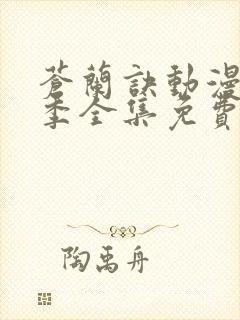 蒼蘭訣動漫
季全集免費
陶禹舟